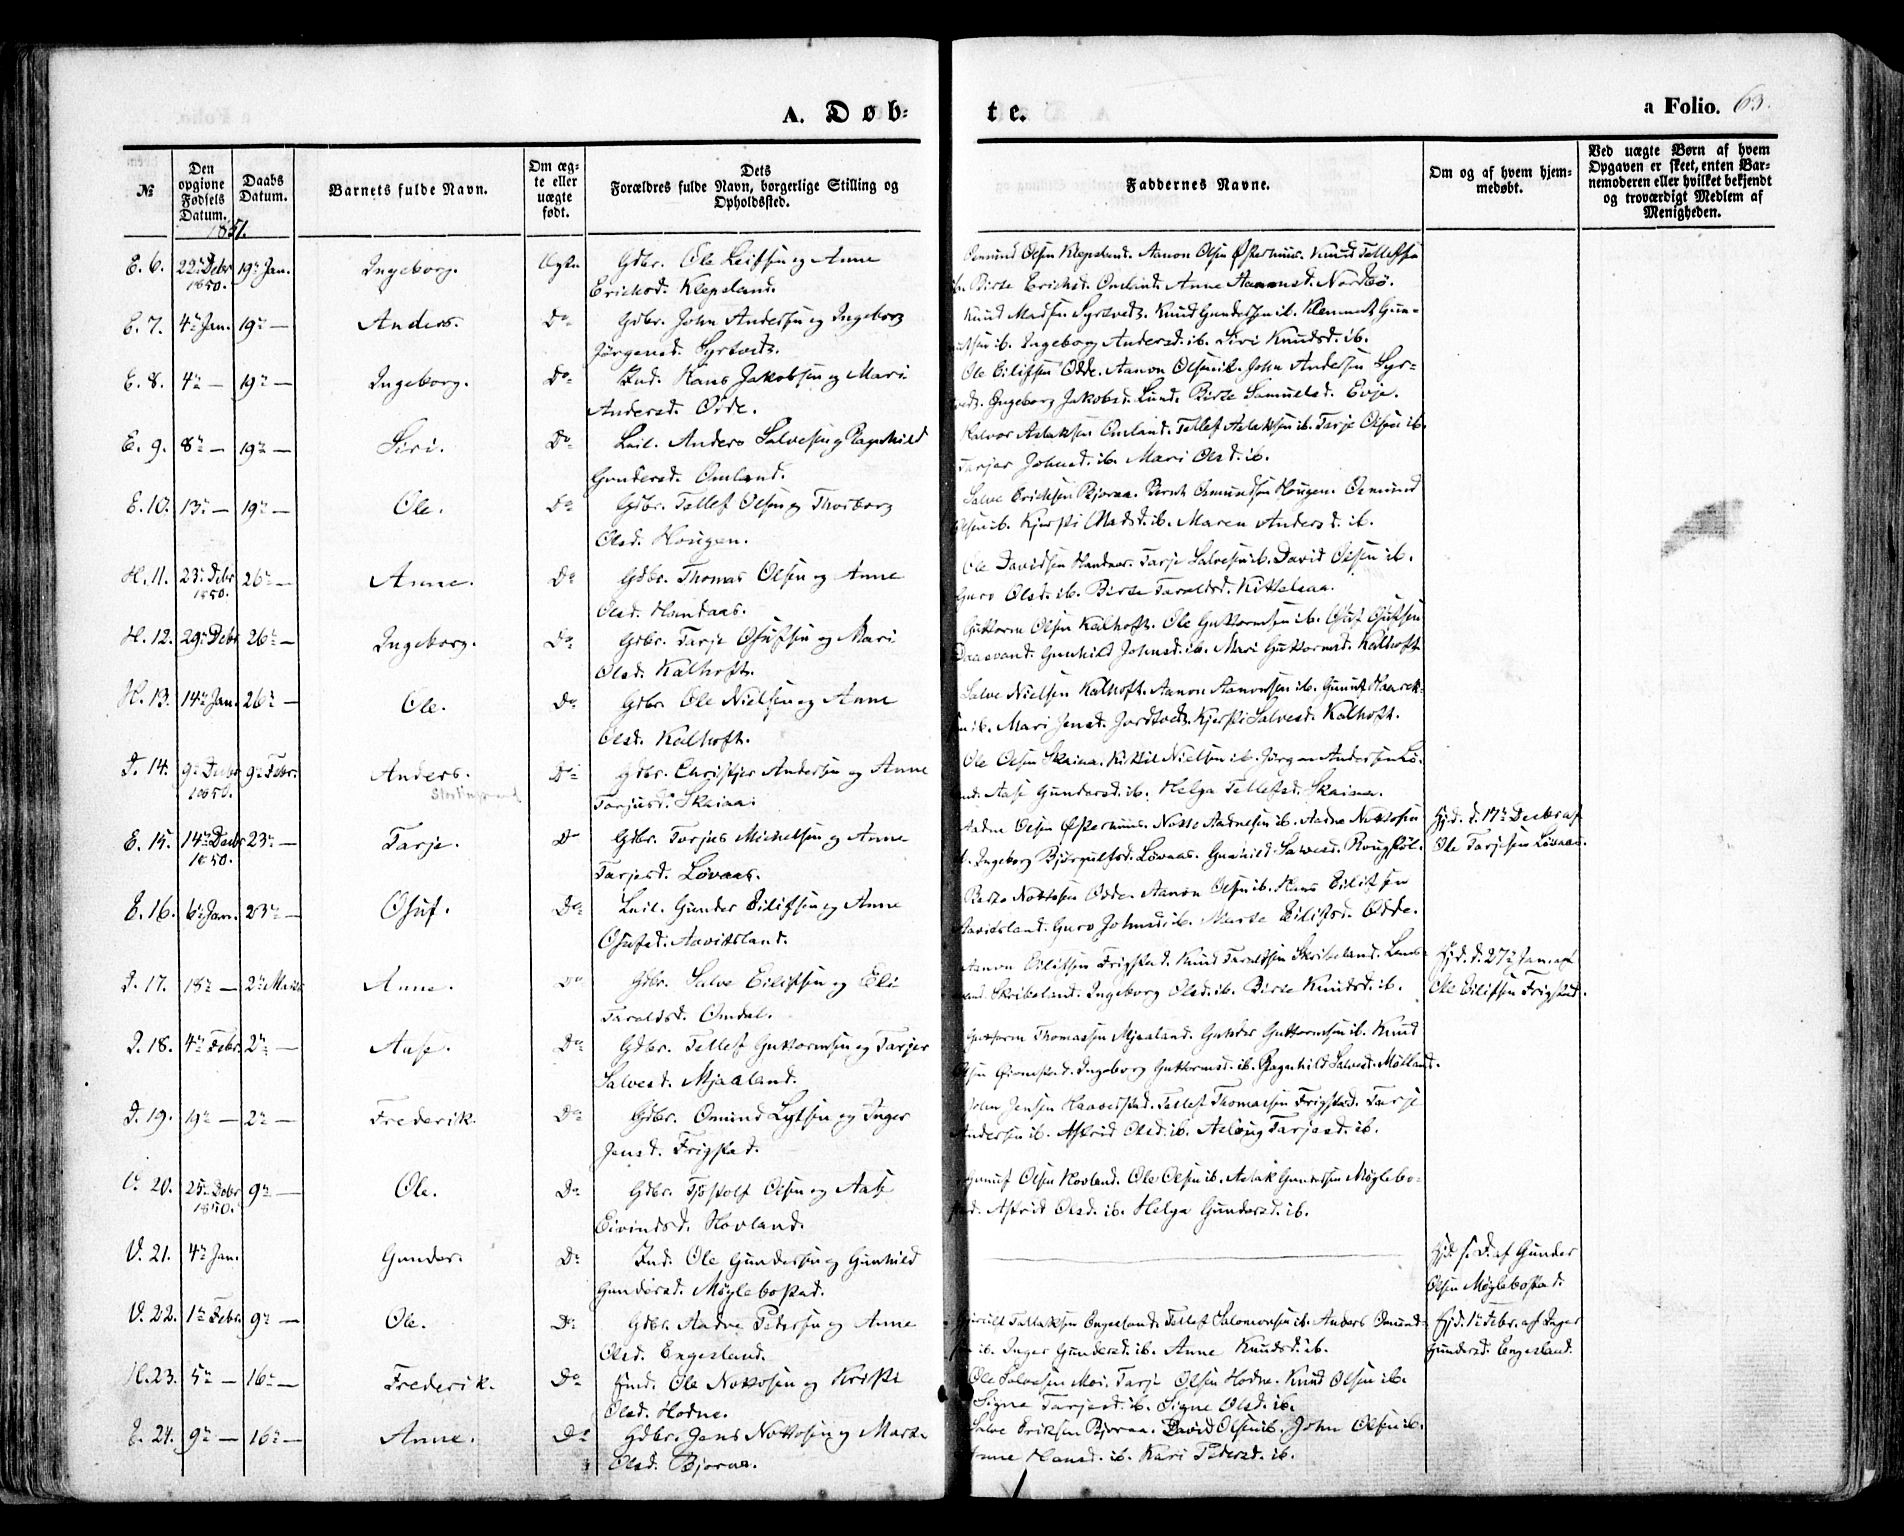 A. Døb-
te.
a Folio. 63.
No
Den opgivne Fødsels Datum.
Daabs Datum.
Barnets fulde Navn.
Om ægte eller uægte født.
Dets Forældres fulde Navn, borgerlige Stilling og Opholdssted.
Faddernes Navne.
Om og af hvem hjemmedøbt.
Ved uægte Børn af hvem Opgaven er skeet, enten Barnemoderen eller hvilket bekjendt og troværdigt Medlem af Menigheden.
1851.
E. 6. 22de Debr 1850. 19de Jan. Ingeborg. Ægte Gdbr. Ole Leifsen og Anne
Erichsd. Klepsland.
Osmund Olsen Klepsland. Aanon Olsen Østerhuus. Knud Tellefsen
ib. Birte Erichsd. Omland. Anne Aanonsd. Nordbø.
E. 7. 4de Jan. 19de — Anders. Do Gdbr. John Andersen og Ingeborg
Jørgensd. Syrtveit.
Knud Madsen Syrtveit. Knud Gundersen ib. Klemmet Gun-
ib. Ingeborg Andersd. ib. Siri Knudsd. ib.
E. 8. 4de — 19de — Ingeborg. Do Ind. Hans Jakobsen og Mari
Andersd. Odde.
Ole Eilifsen Odde. Aanon Olsen ib. John Andersen Syr-
tveit. Ingeborg Jakobsd. Lund. Birte Samuelsd. Evje.
E. 9. 8de — 19de — Siri. Do Leil. Anders Salvesen og Ragnhild
Gundersd. Omland.
Halvor Aslaksen Omland. Tellef Aslaksen ib. Tarje Olsen ib.
Tarjer Johnsd. ib. Mari Olsd. ib.
E. 10. 13de — 19de — Ole. Do Gdbr. Tellef Olsen og Thorborg
Olsd. Hougen.
Salve Erichsen Bjoraa. Bernt Osmundsen Hougen. Osmund
Olsen ib. Kjersti Madsd. ib. Maren Andersd. ib.
H. 11. 23de Debr 1850. 26de — Anne. Do Gdbr. Thomas Olsen og Anne
Olsd. Handaas.
Ole Davidsen Handaas. Tarje Salvesen ib. David Olsen ib.
Guro Olsd. ib. Birte Taraldsd. Kittelsaa.
H. 12. 29de Debr 26de — Ingeborg. Do Gdbr. Tarje Osufsen og Mari
Olsd. Kalhoft.
Guttorm Olsen Kalhoft. Ole Guttormsen ib. Osuf Osufsen
Daasvand. Gunhild Johnsd. ib. Mari Guttormsd. Kalhoft.
H. 13. 14de Jan. 26de — Ole. Do Gdbr. Ole Nielsen og Anne
Olsd. Kalhoft.
Salve Nielsen Kalhoft. Aanon Aanonsen ib.
ib. Mari Jensd. Jordtveit. Kjersti Salvesd. Kalhoft.
D. 14. 9de Debr 1850. 9de Febr. Anders. Do Gdbr. Christjer Andersen og Anne
Tarjusd. Skaiaa.
Ole Olsen Skaiaa. Kittil Nielsen ib. Jørgen Andersen Lø-
land. Aase Gundersd. ib. Helga Tellefsd. Skaiaa.
E. 15. 14de Debr 1850. 23de — Tarje. Do Gdbr. Torjus Michelsen og Anne
Tarjesd. Løvaas.
Aadne Olsen Østerhuus. Notto Aadnesen ib. Aadne Nottosen
ib. Ingeborg Bjørgulfsd. Løvaas. Gunhild Salvesd.
Hjd. d. 17de Decbr af
Ole Tarjesen Løvaas.
E. 16. 6te Jan. 23de — Osuf. Do Leil. Gunder Eilifsen og Anne
Osufsd. Aavitsland.
Nottosen Odde. Aanon Olsen ib. Hans Eilifsen
Aavitsland. Guro Johnsd. ib. Marte Eilifsd. Odde.
D. 17. 18de — 2den Marts Anne. Do Gdbr. Salve Eilifsen og Eli
Taraldsd. Omdal.
Aanon Eilifsen Frigstad. Knud Taraldsen Skribeland.
Skribeland. Ingeborg Olsd. ib. Birte Knudsd. ib.
Hjd. d. 27de Jan. af
Ole Eilifsen Frigstad.
D. 18. 4de Febr. 2den — Aase. Do Gdbr. Tellef Guttormsen og Tarjer
Salvesd. Mjaaland.
Guttorm Thomassen Mjaaland. Gunder Guttormsen ib. Knud
Ingeborg Guttormsd. ib. Ragnhild Salvesd. Mølland.
D. 19. 19de — 2den — Frederik. Do Gdbr. Omund Lytsen og Inger
Jensd. Frigstad.
John Jensen Haaverstad. Tellef Thomassen Frigstad. Tarje
Andersen ib. Astrid Olsd. ib. Aslaug Tarjesd. ib.
V. 20. 25de Debr 1850. 9de — Ole. Do Gdbr. Tjøstolf Olsen og Aase
Eivindsd. Hovland.
Gunuf Olsen Hovland. Ole Olsen ib. Aslak Gundersen Møglebo-
stad. Astrid Olsd. ib. Helga Gundersd. ib.
V. 21. 4de Jan. Gunder. Do Ind. Ole Gundersen og Gunhild
Gundersd. Møglebostad.
Hjd. s. D. af Gunder
Olsen Møglebostad.
V. 22. 1ste Febr. 9de — Ole. Do Gdbr. Aadne Pedersen og Anne
Olsd. Engesland.
Tallaksen Engesland. Tellef Salomonsen ib. Anders Osmund-
sen ib. Inger Gundersd. ib. Anne Knudsd. ib.
Hjd. 1ste Febr. af Inger
Gundersd. Engesland.
H. 23. 5te — 16de — Frederik. Do Ind. Ole Nottosen og Kristi
Olsd. Hodne.
Ole Salvesen Moi. Tarje Olsen Hodne. Knud Olsen ib.
Signe Tarjesd. ib. Signe Olsd. ib.
E. 24. 9de — 16de — Anne. Do Gdbr. Jens Nottosen og Marte
Olsd. Bjoraa.
Salve Eriksen Bjoraa. David Olsen ib. John Olsen ib.
Anne Hansd. ib. Kari Pedersd. ib.